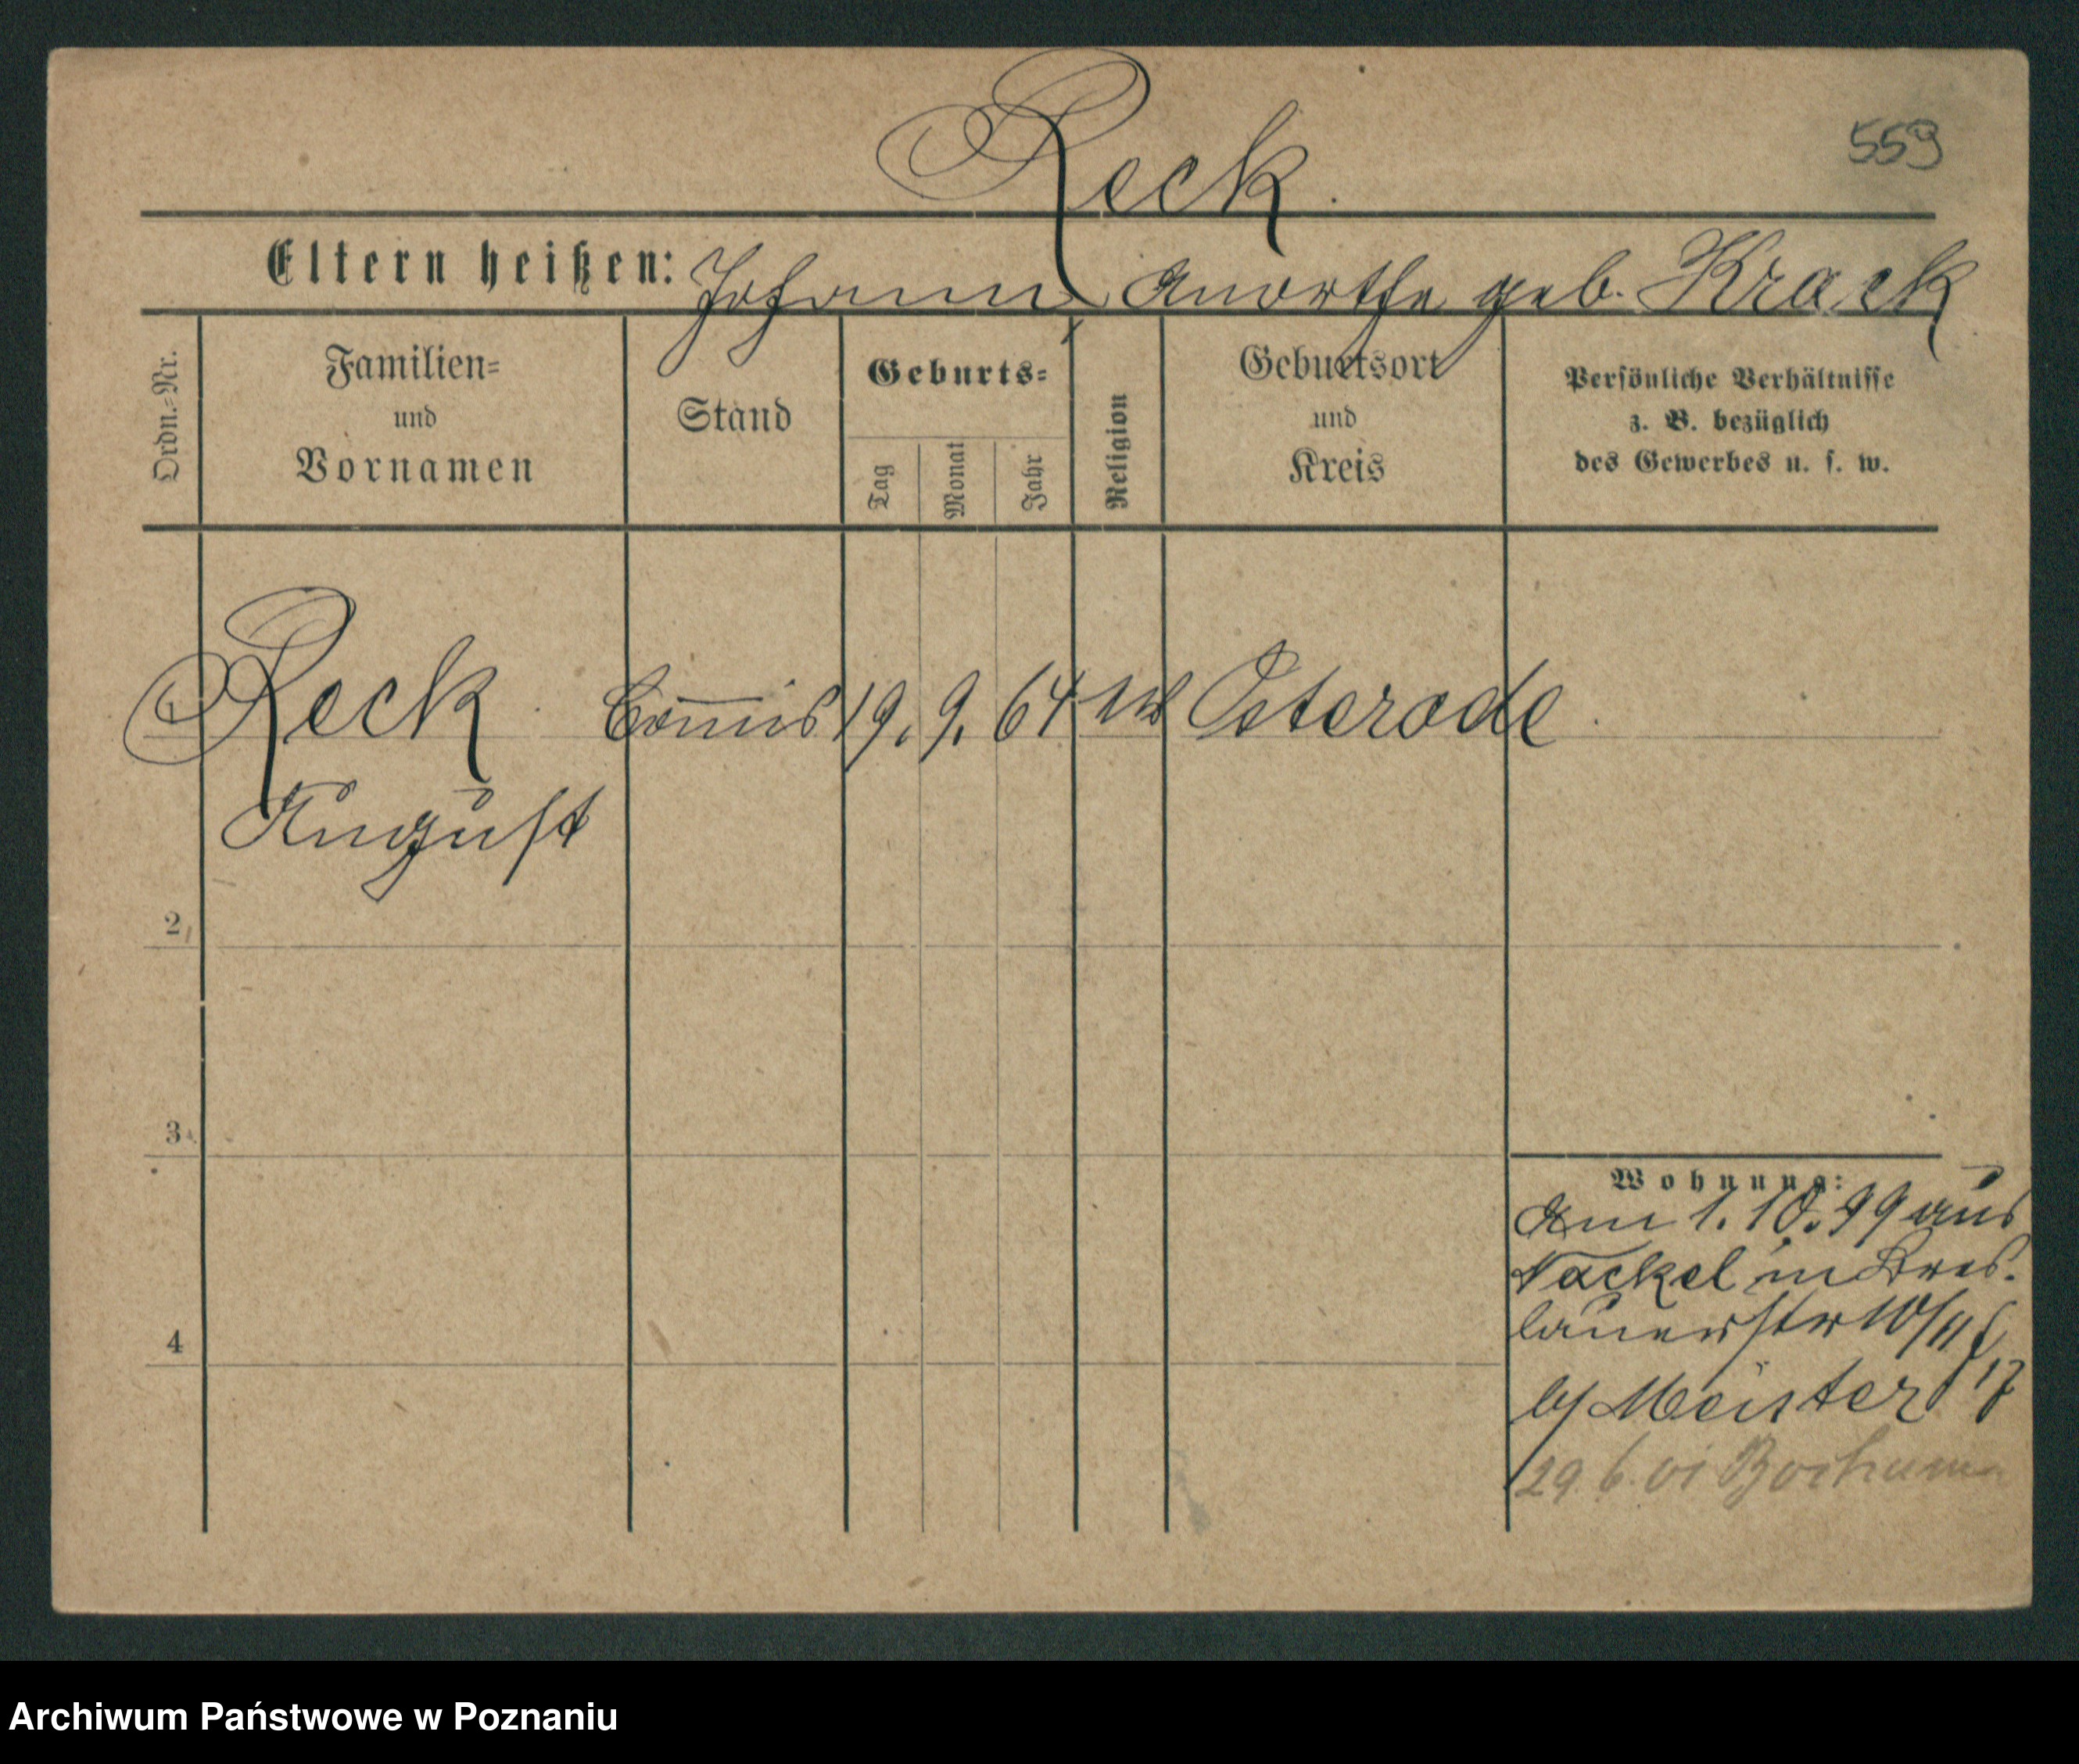 Reck.
559
Eltern heißen: Johann geb. Krack
Ordn.-Nr.
Familien-
und
Vornamen
Stand
Geburts-
Tag
Monat
Jahr
Religion
Geburtsort
und
Kreis
Persönliche Verhältnisse
z. B. bezüglich
des Gewerbes u. s. w.
Reck Com̄is 19. 9. 64 Osterode.
August
2
3
4
Wohnung:
Am 1. 10. 99 aus
Nackel in Bres-
lauerstr 10/11
b/ Meister 17
29 6. 01 Bochum
Archiwum Państwowe w Poznaniu